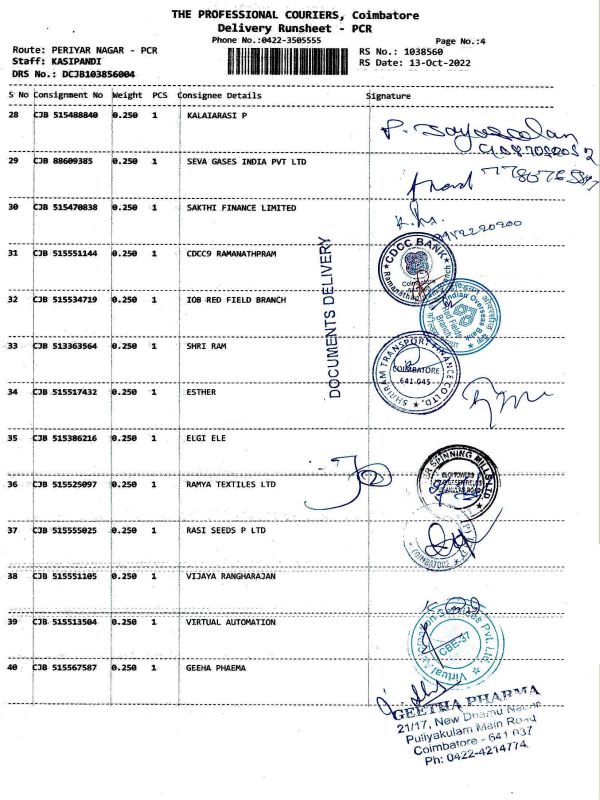 THE PROFESSIONAL COURIERS, Coimbatore
Delivery Runsheet - PCR
Phone No.:0422-3505555
Page No.:4
Route: PERIYAR NAGAR - PCR
RS No.: 1038560
Staff: KASIPANDI
RS Date: 13-Oct-2022
DRS No.: DCJB103856004
S No Consignment No Weight PCS Consignee Details Signature
28 CJB 515488840 0.250 1 KALAIARASI P
29 CJB 88609385 0.250 1 SEVA GASES INDIA PVT LTD
30 CJB 515470838 0.250 1 SAKTHI FINANCE LIMITED
31 CJB 515551144 0.250 1 CDCC9 RAMANATHPRAM
CDCC BANK
32 CJB 515534719 0.250 1 IOB RED FIELD BRANCH
Indian Overseas Bank
DOCUMENTS DELIVERY
33 CJB 513363564 0.250 1 SHRI RAM
SHRIRAM TRANSPORT FINANCE CO LTD.
COIMBATORE
641 045
34 CJB 515517432 0.250 1 ESTHER
35 CJB 515386216 0.250 1 ELGI ELE
SPINNING MILLS LTD.
36 CJB 515525097 0.250 1 RAMYA TEXTILES LTD
37 CJB 515555025 0.250 1 RASI SEEDS P LTD
COIMBATORE
38 CJB 515551105 0.250 1 VIJAYA RANGHARAJAN
39 CJB 515513504 0.250 1 VIRTUAL AUTOMATION
CBE-37
40 CJB 515567587 0.250 1 GEEHA PHAEMA
GEETHA PHARMA
21/17, New Dhamu Nagar
Puliyakulam Main Road
Coimbatore - 641 037
Ph: 0422-4214774